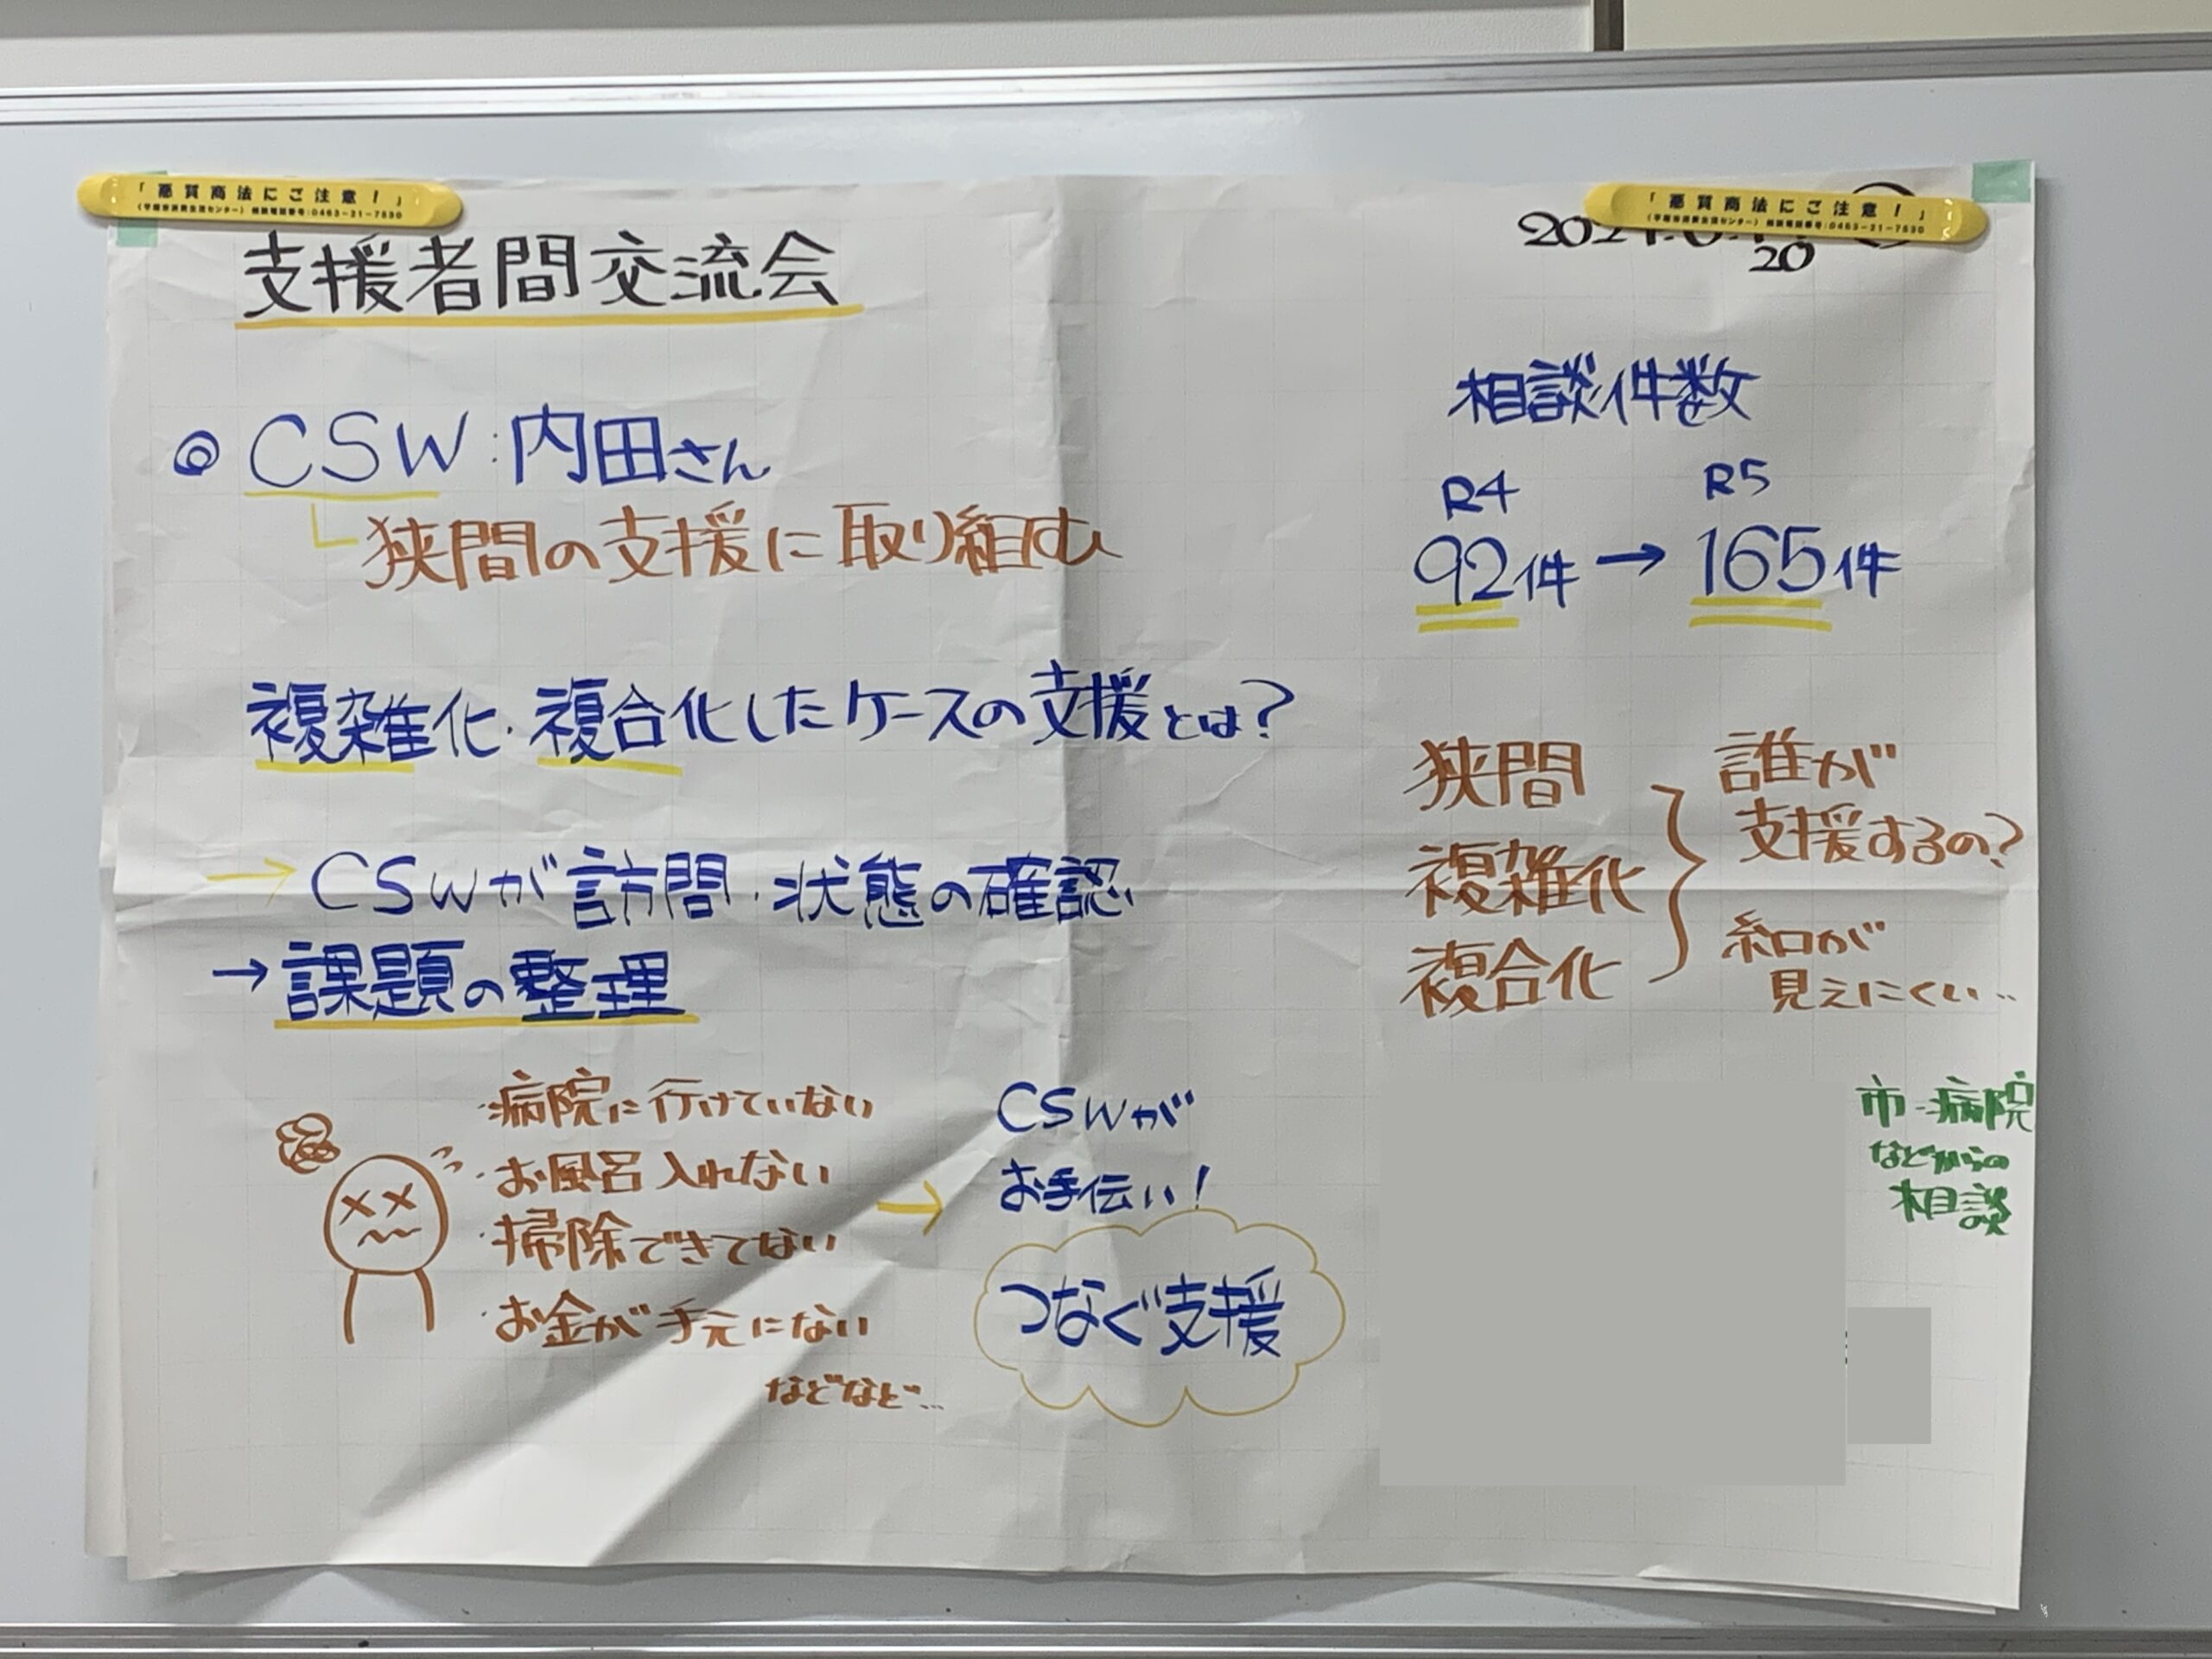 「悪質商法にご注意！」
(平塚市消費生活センター) 相談電話番号:0463-21-7530
「悪質商法にご注意！」
(平塚市消費生活センター) 相談電話番号:0463-21-7530
20
支援者間交流会
◎ CSW:内田さん
狭間の支援に取り組む
複雑化・複合化したケースの支援とは？
→ CSWが訪問・状態の確認
→課題の整理
・病院に行けていない
・お風呂入れない
・掃除できてない
・お金が手元にない
などなど…
→
CSWが
お手伝い！
つなぐ支援
相談件数
R4 R5
92件→165件
狭間
複雑化
複合化
誰が
支援するの？
糸口が
見えにくい…
市・病院
などからの
相談